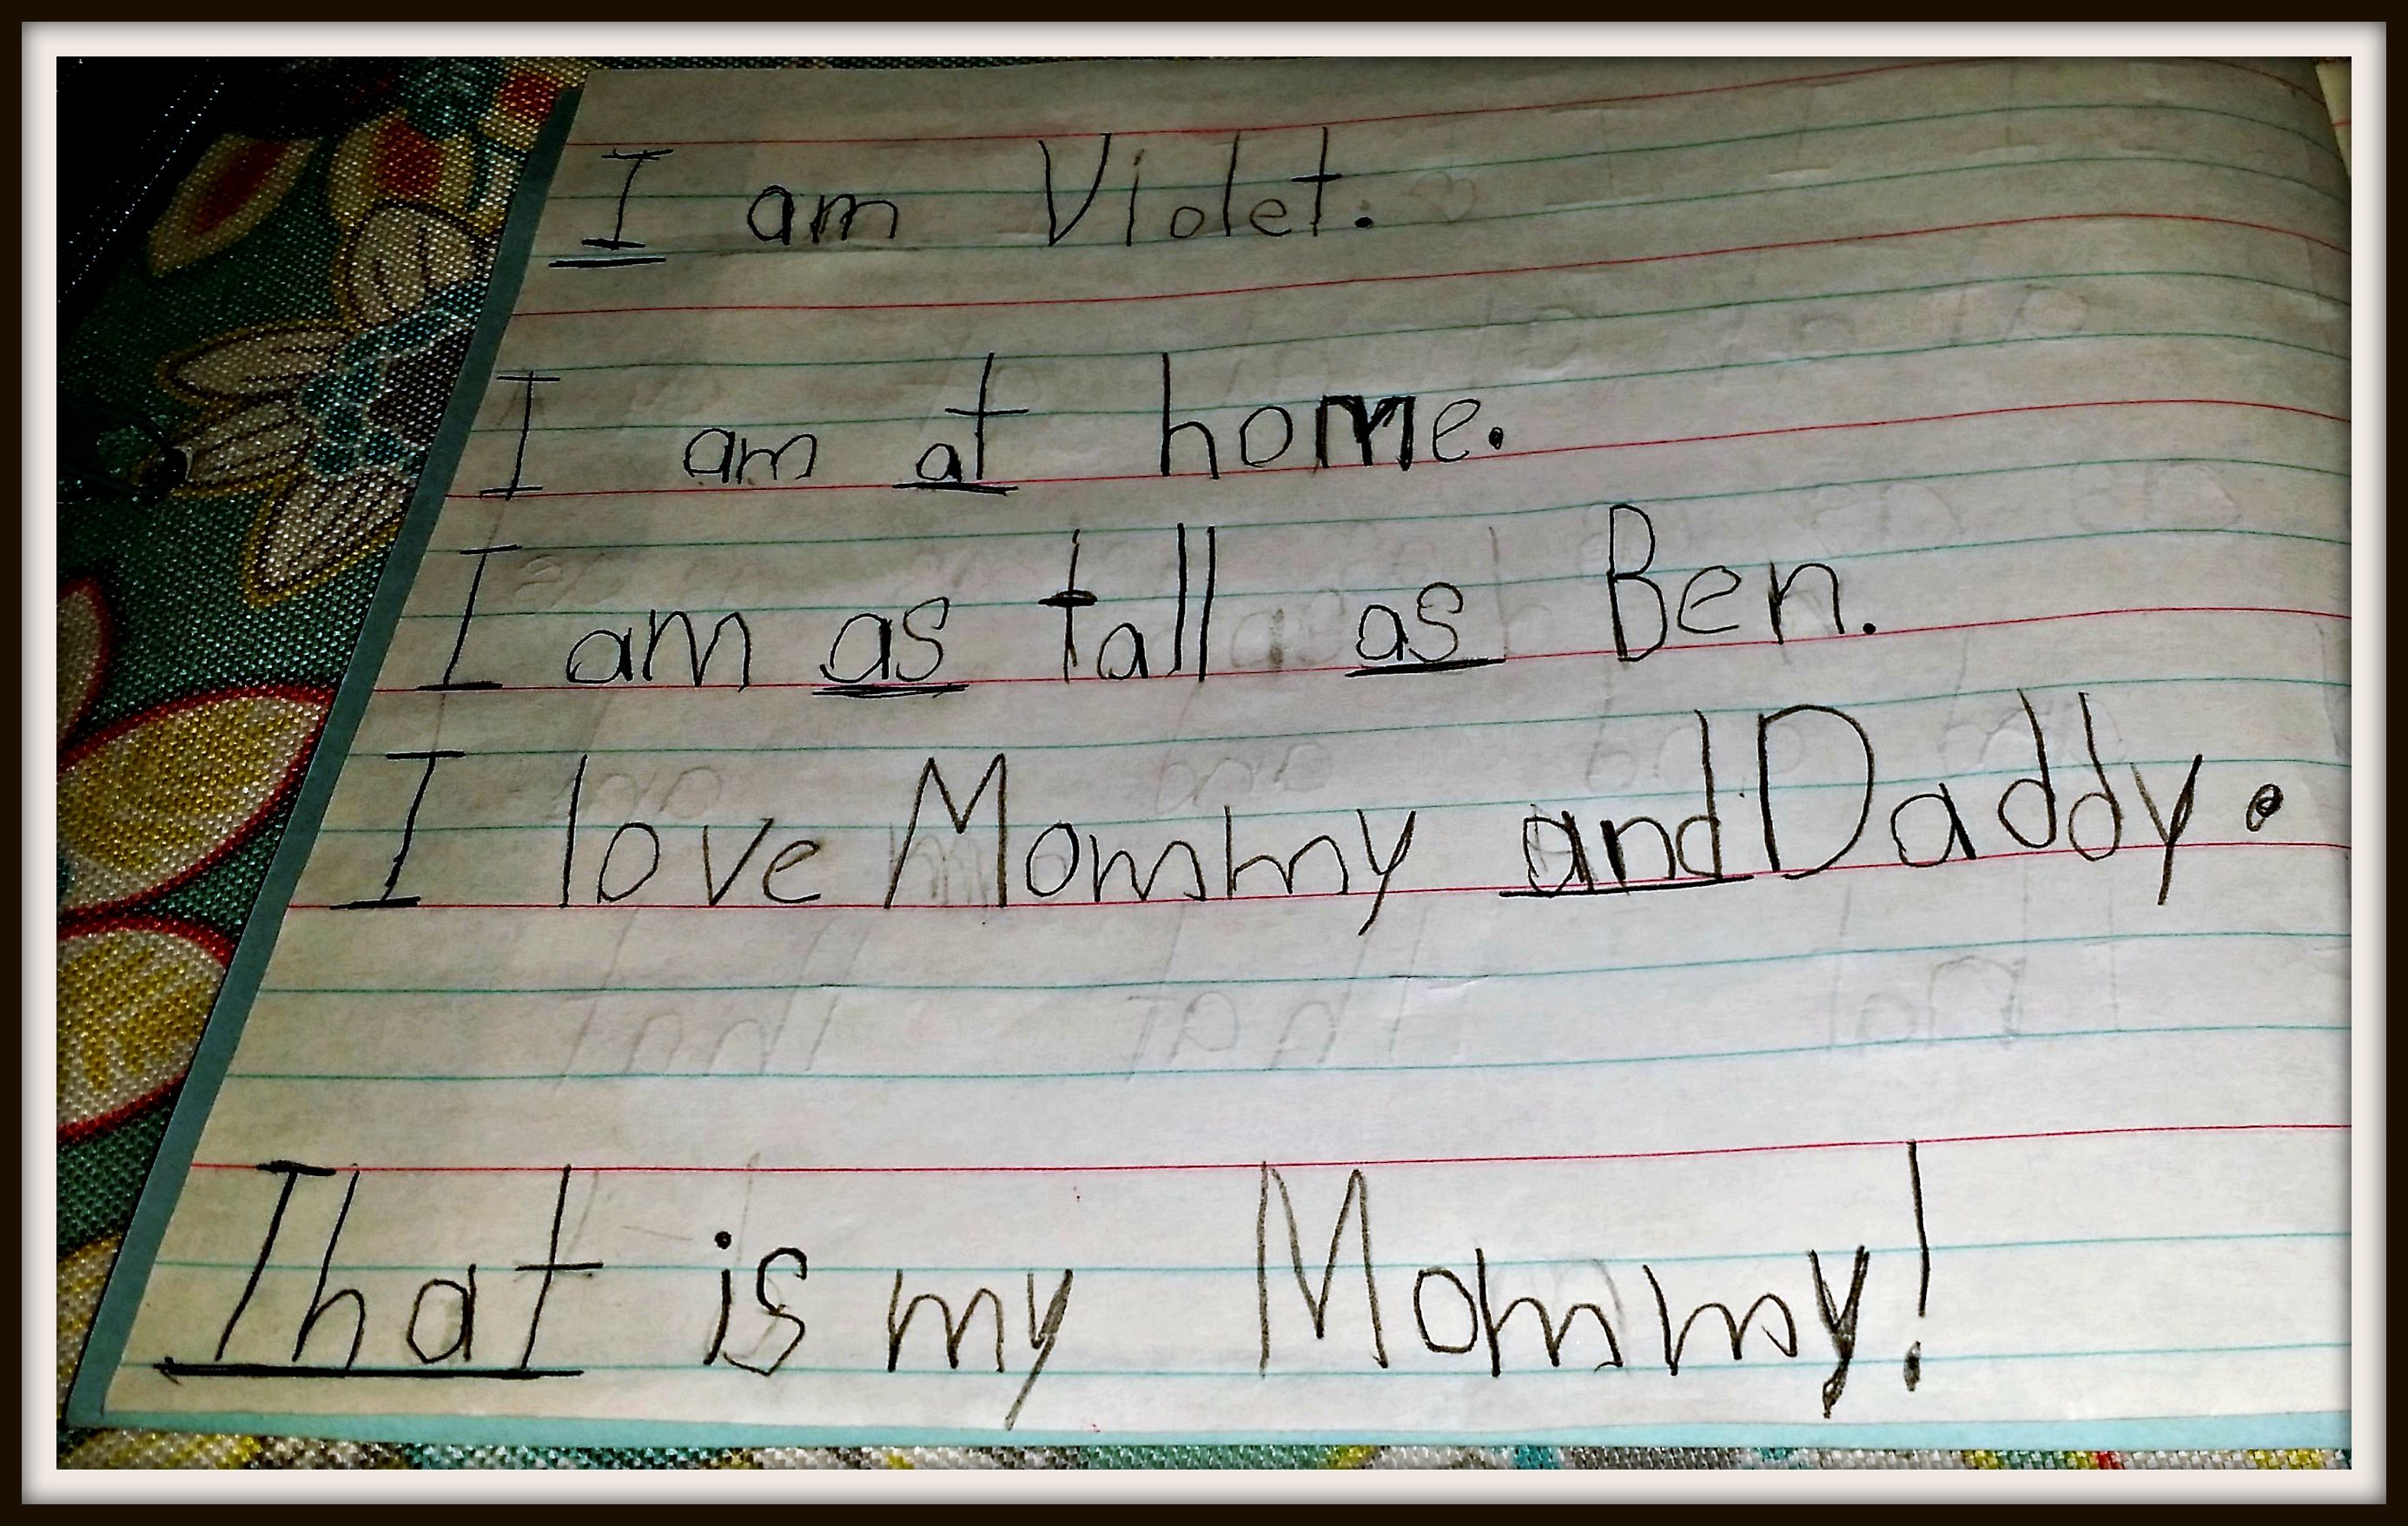 I am Violet.
I am at home.
I am as tall as Ben.
I love Mommy and Daddy.
That is my Mommy!